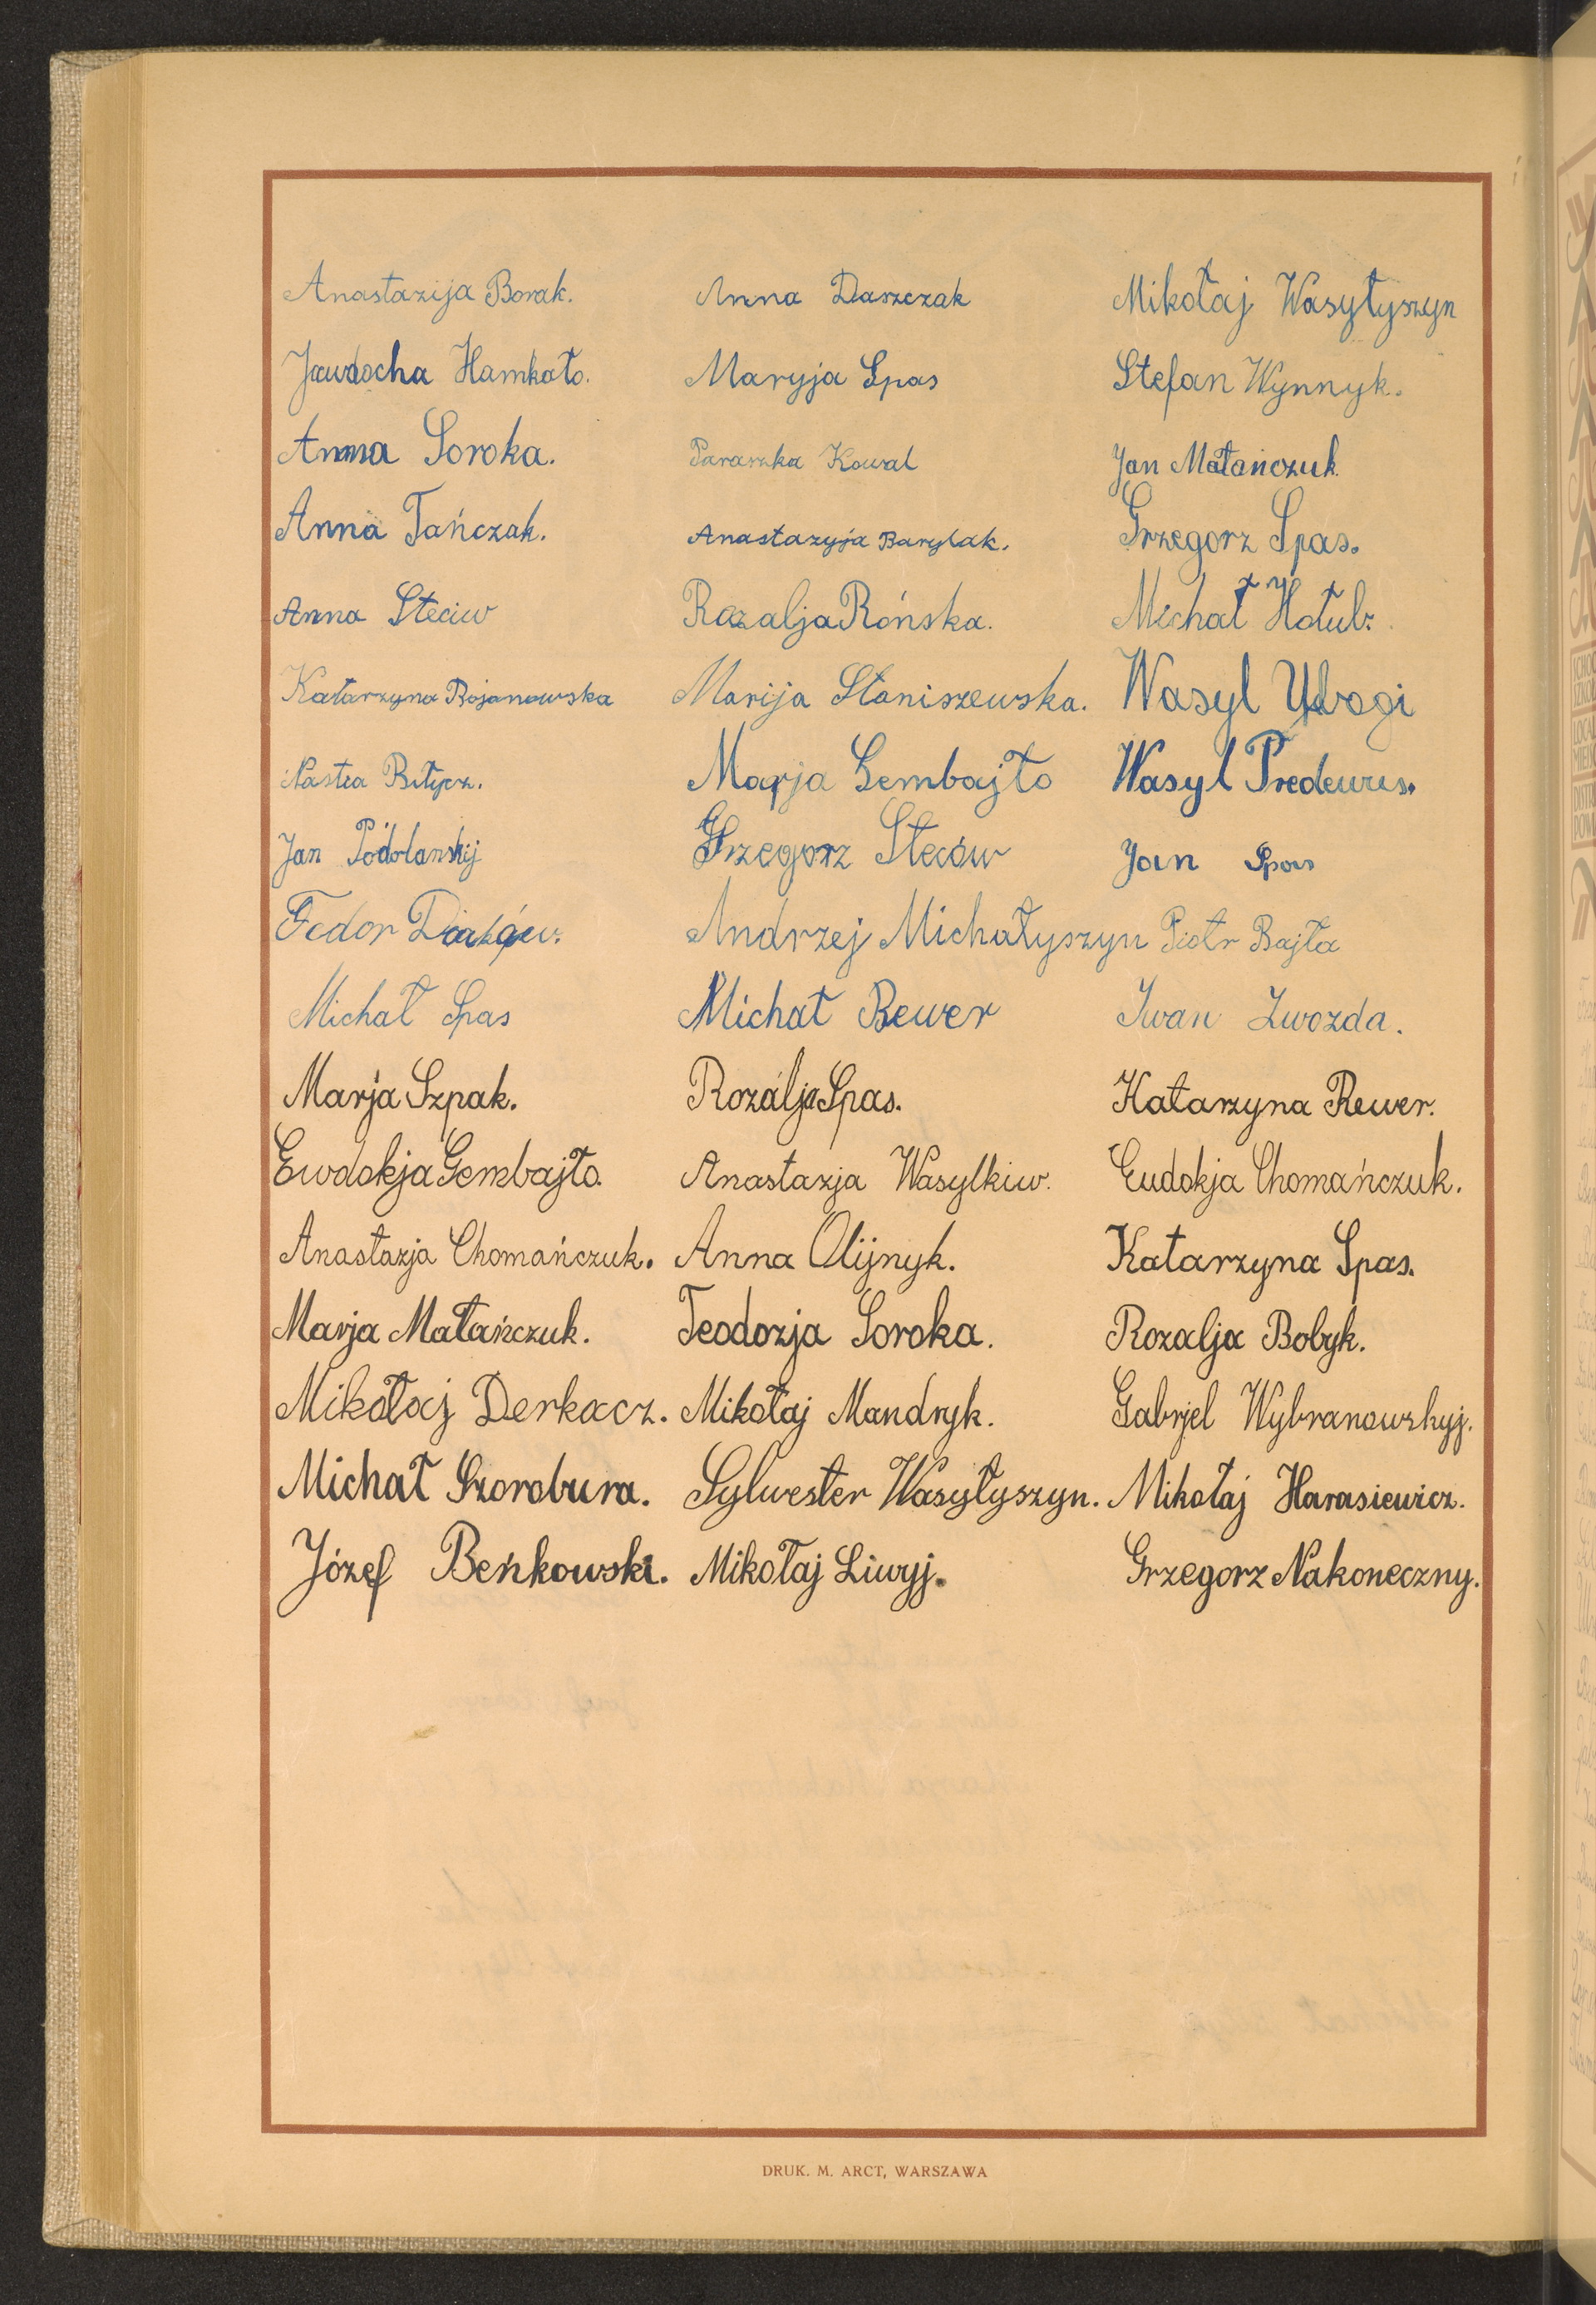 Anastazija Borak. Anna Daszczak Mikołaj Wasyłyszyn
Jawdocha Hamkało. Maryja Spas Stefan Wynnyk.
Anna Soroka. Paraszka Kowal Jan Małańczuk
Anna Tańczak. Anastazyja Barylak. Grzegorz Spas.
Anna Steciw Rozalja Rońska. Michał Hołub.
Katarzyna Bojanowska Marija Staniszewska. Wasyl
Nastea Marja Gembajło Wasyl
Jan Podolanskij Grzegorz Steców Jan Spas
Fedor Andrzej Michałyszyn Piotr Bajła
Michał Spas Michał Rewer Iwan Zwozda.
Marja Szpak. Rozalja Spas. Katarzyna Rewer.
Ewdokja Gembajło. Anastazja Wasylkiw. Eudokja Chomańczuk.
Anastazja Chomańczuk. Anna Olijnyk. Katarzyna Spas.
Marja Małańczuk. Teodozja Soroka. Rozalja Bobyk.
Mikołaj Derkacz. Mikołaj Mandryk. Gabrjel Wybranowskyj.
Michał Szorobura. Sylwester Wasyłyszyn. Mikołaj Harasiewicz.
Józef Beńkowski. Mikołaj Liwyj. Grzegorz Nakoneczny.
DRUK. M. ARCT, WARSZAWA